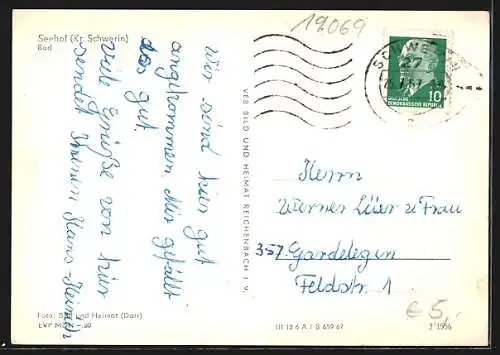 19.069
Seehof (Kr. Schwerin)
Bad
Wir sind hier gut
angekommen. Mir gefällt
das gut.
Viele Grüße von hier
sendet Ihnen Hans-Heiner
VEB BILD UND HEIMAT REICHENBACH I. V.
SCHWERIN
27
10
DEUTSCHE
DEMOKRATISCHE REPUBLIK
Herrn
Werner Lüer u Frau
357 Gardelegen
Feldstr. 1
€ 5,-
Foto: Bild und Heimat (Darr)
EVP MDN
III 18 6 A 1 B 659 67
2 1956